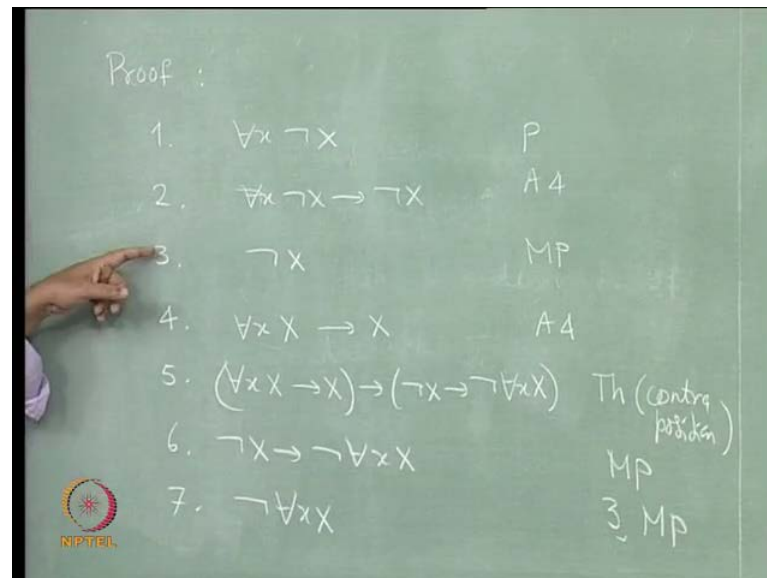 Proof :
1. ∀x ¬X P
2. ∀x ¬X → ¬X A4
3. ¬X MP
4. ∀x X → X A4
5. (∀x X → X) → (¬X → ¬∀x X) Th (contra
position)
6. ¬X → ¬∀x X MP
7. ¬∀x X 3, MP
NPTEL